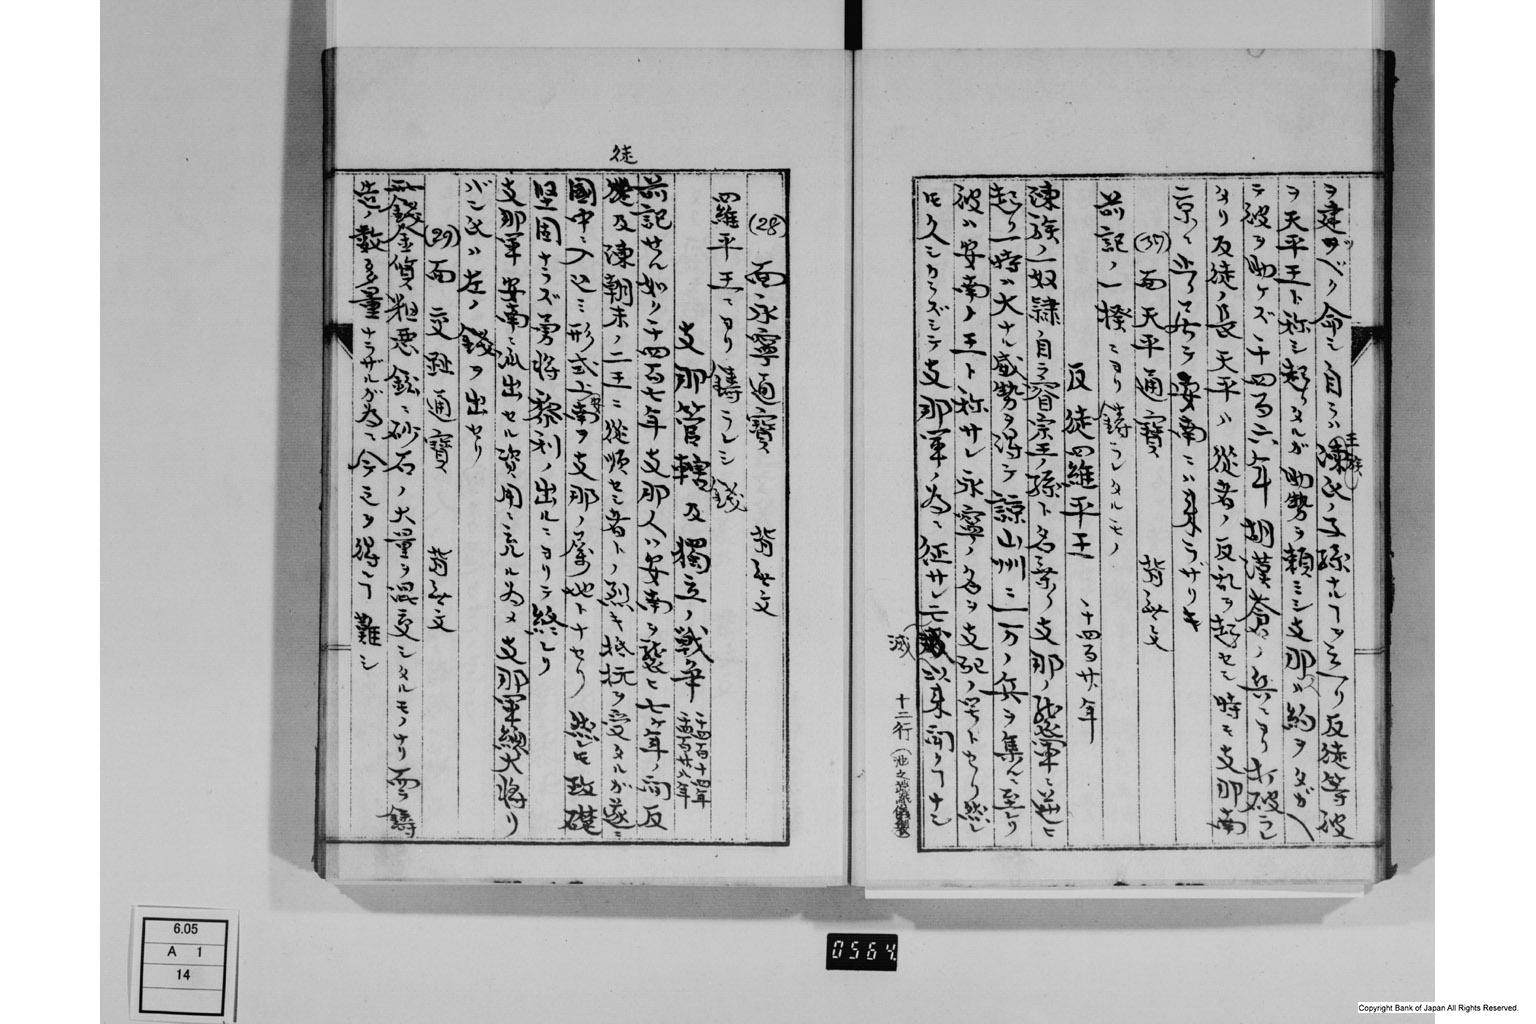 ヲ建ツベク命ジ自ラハ陳氏ノ子孫ナルコトヲ云ヘリ反徒等彼
王族
ヲ天平王ト称シ起リタルガ助勢ヲ頼ミシ支那ハ約ヲタガヘ
テ彼ヲ助ケズ千四百六年胡漢蒼ノ兵ニヨリ打破ラレ
タリ反徒ノ長天平ハ従者ノ反乱ヲ起セシ時モ支那南
京ニ止マリ居テ安南ニハ来ラザリキ
(37) 面天平通寶 背無文
前記ノ一揆ニヨリ鋳ラレタルモノ
反徒羅平王 千四百廿年
陳族ノ一奴隷ノ自ラ睿宗王ノ孫ト名乗リ支那ノ襲軍ニ逆ヒ
起リ一時ハ大ナル威勢ヲ得テ諒山州ニ一万ノ兵ヲ集ムニ至レリ
彼ハ安南ノ王ト称サレ永寧ノ名ヲ支配ノ号トセリ然レ
ヒ久シカラズシテ支那軍ノ為ニ征サレ亡滅以来聞クコトナシ
滅
十二行
(28) 面永寧通寶 背無文
羅平王ニヨリ鋳ラレシ錢
支那管轄及獨立ノ戦争 千四百十四年 千四百廿八年
前記せん如リ千四百七年支那人ハ安南ヲ襲ヒ七ヶ年ノ間反
徒
徒及陳朝末ノ二王ニ従順セシ者トノ烈キ抵抗ヲ受タルガ遂ニ
國中ニ入込ミ形式上安南ヲ支那ノ属地トナセリ然レ𪜈政礎
堅固ナラズ勇将黎利ノ出ルニヨリテ終レリ
支那軍安南ニ派出セル資用ニ充ル為メ支那軍総大将リ
バン氏ハ左ノ錢ヲ出セリ
(29) 面交趾通寶 背無文
此錢金質粗悪鉱ニ砂石ノ大量ヲ混交シタルモノナリ而テ鋳
造ノ数多量ナラザルガ為ニ今之ヲ得ルコト難シ
6.05
A 1
14
0564.
Copyright Bank of Japan All Rights Reserved.